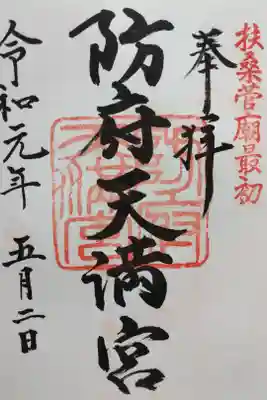 扶桑菅廟最初
奉拝
防府天満宮
令和元年 五月二日